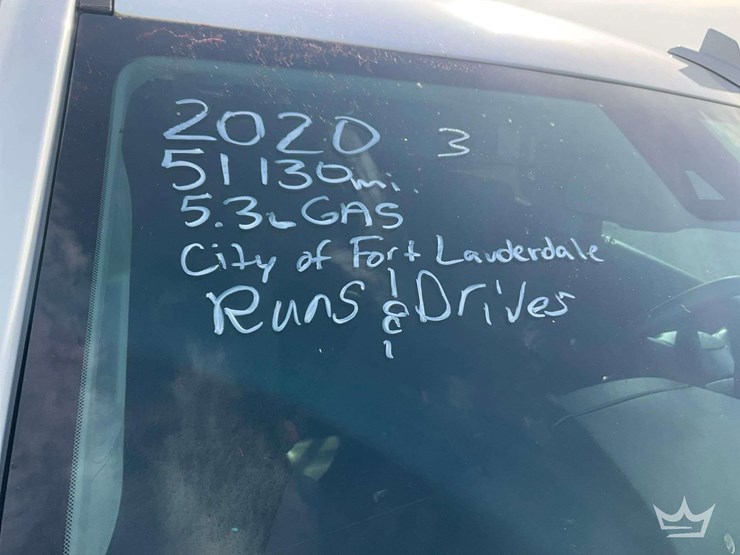 2020 3
51130mi.
5.3L GAS
City of Fort Lauderdale
Runs & Drives